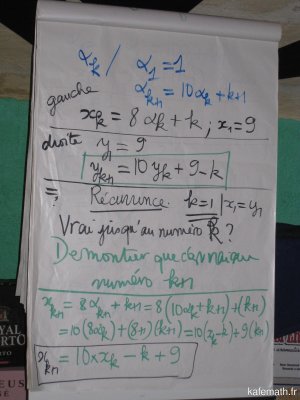 α_k / α_1 = 1
α_{k+1} = 10α_k + k+1
gauche
x_k = 8α_k + k ; x_1 = 9
droite y_1 = 9
y_{k+1} = 10 y_k + 9 - k
Récurrence. k=1 | x_1 = y_1
Vrai jusqu'au numéro k ?
Démontrer que c'est vrai au
numéro k+1
x_{k+1} = 8α_{k+1} + k+1 = 8(10α_k + k+1) + (k+1)
= 10(8α_k) + (8+1)(k+1) = 10(x_k - k) + 9(k+1)
x_{k+1} = 10 × x_k - k + 9
kafemath.fr